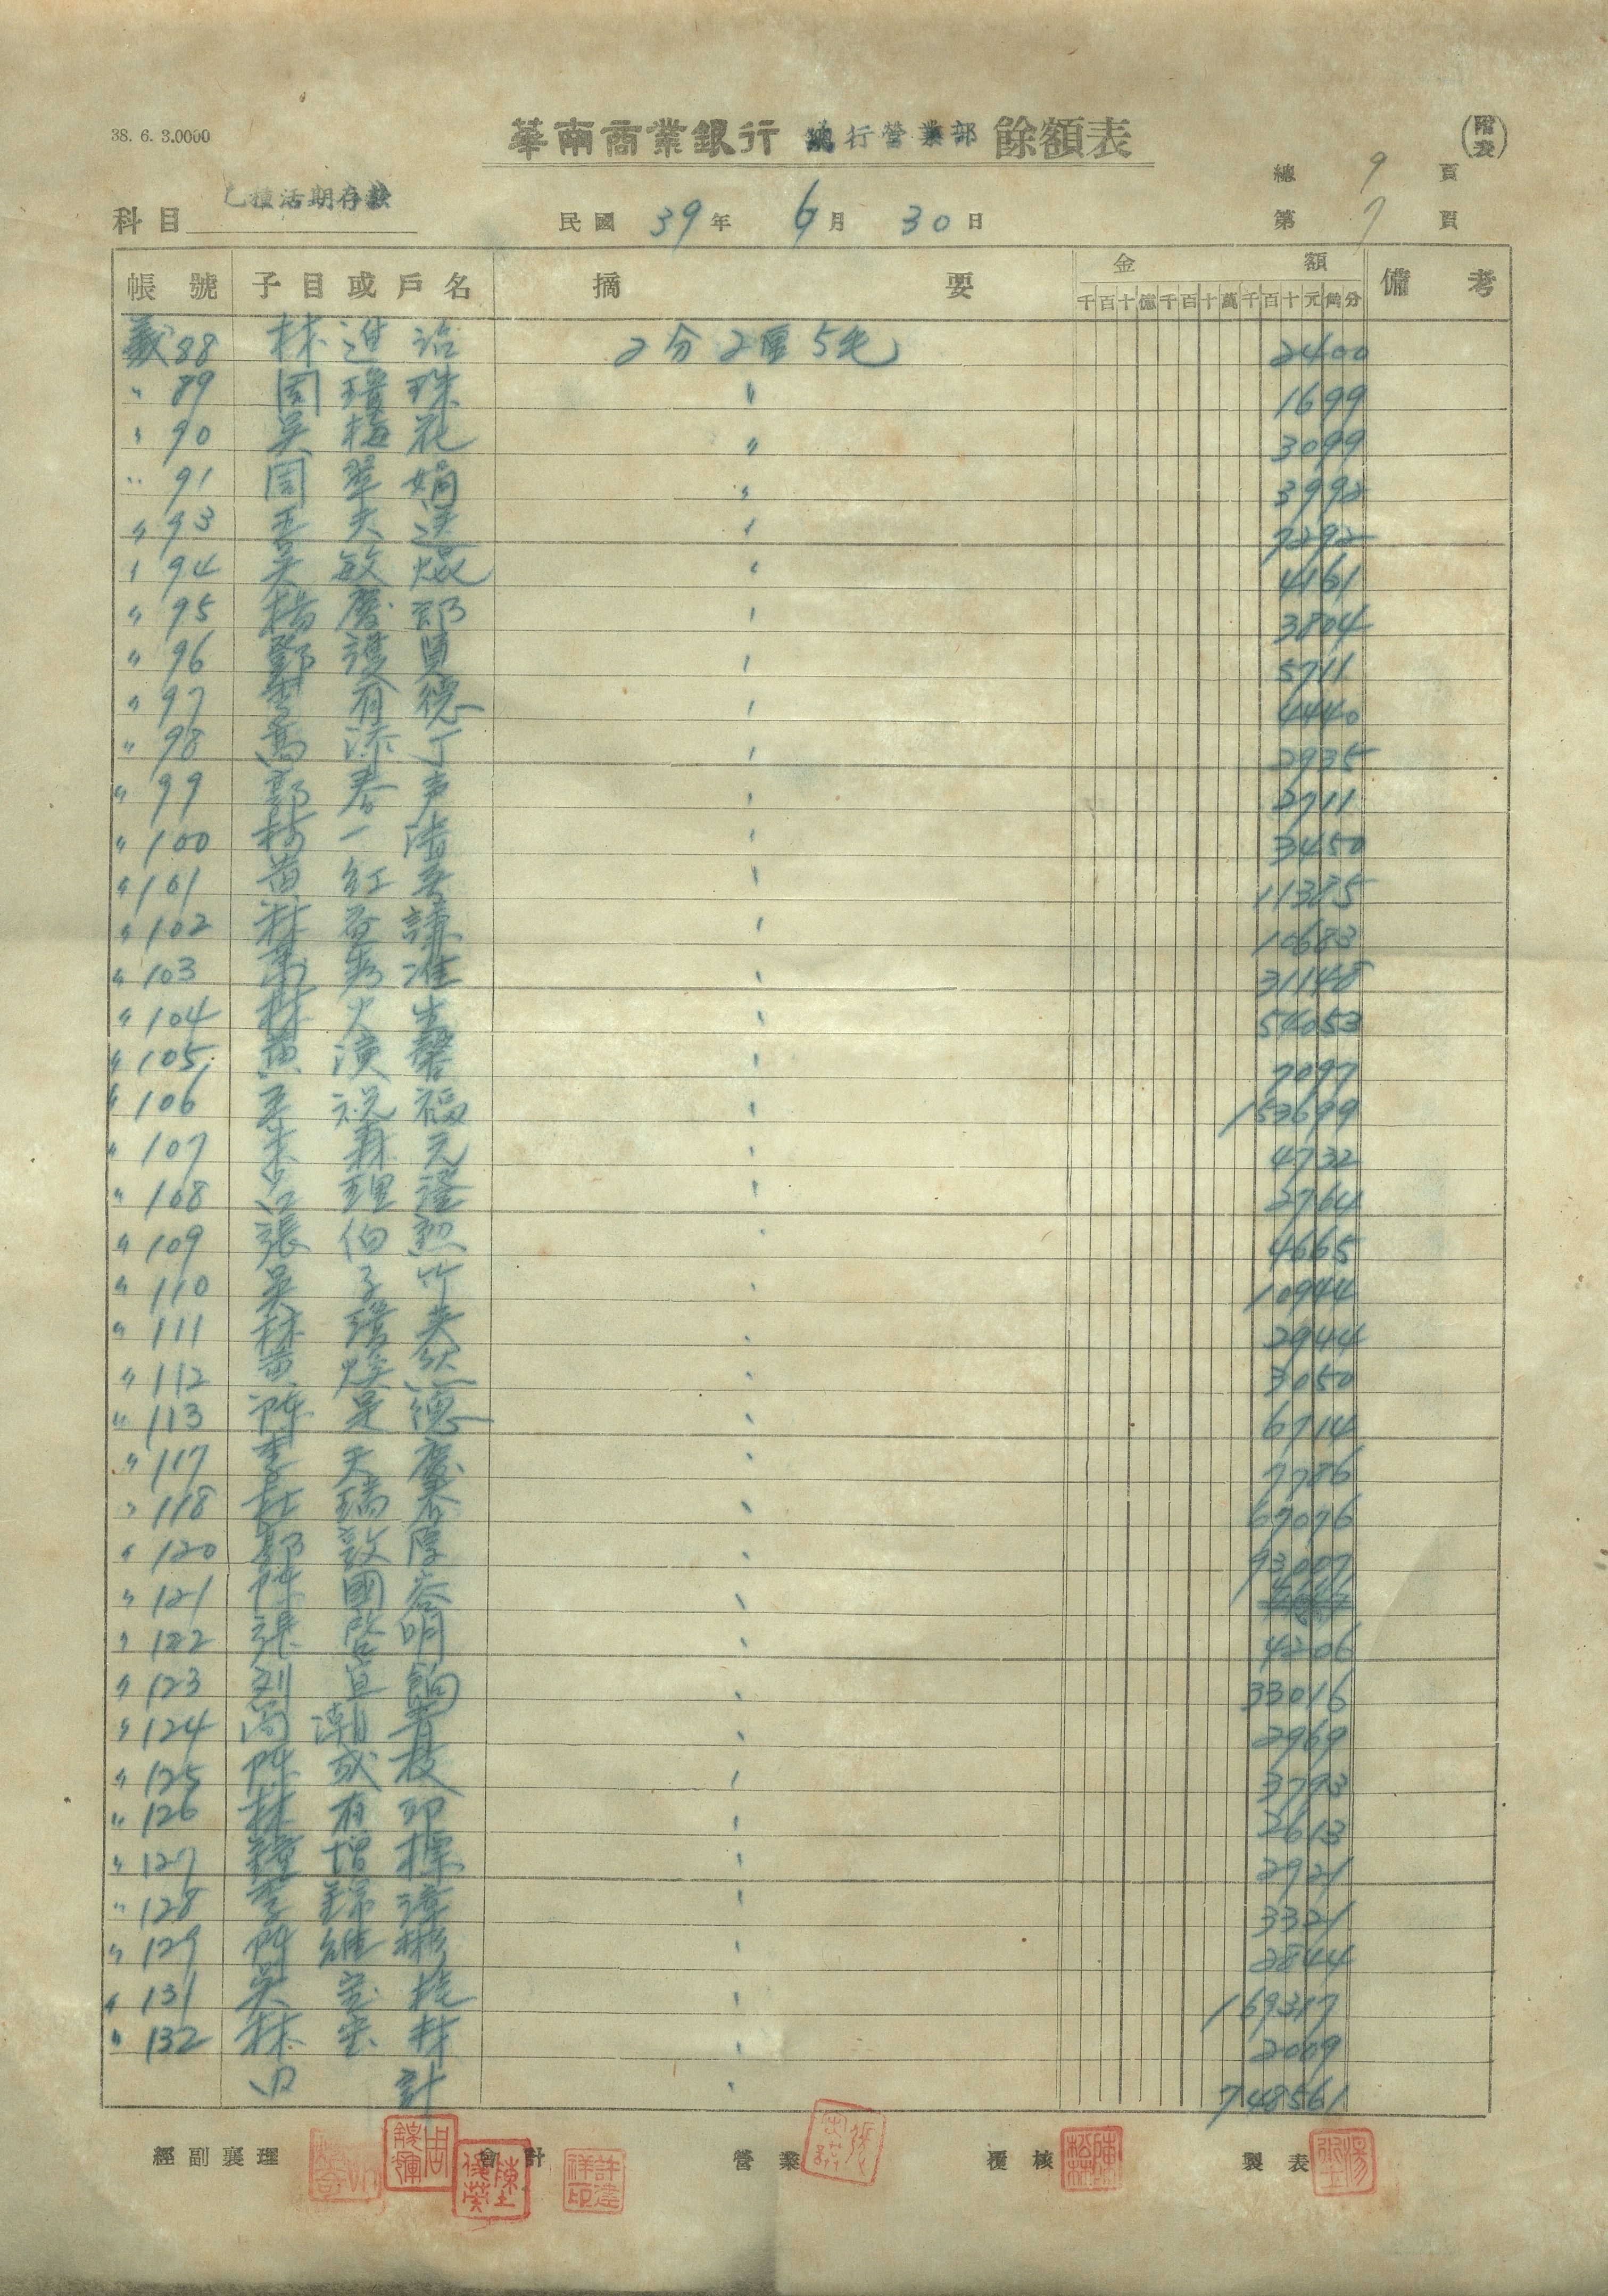 38. 6. 3.0000
華南商業銀行 總行營業部 餘額表
(附表)
總 9 頁
科目 乙種活期存款
民國 39 年 6 月 30 日
第 7 頁
帳號 子目或戶名 摘要 金額 備考
千百十億千百十萬千百十元角分
義88 林進治 2分2厘5毛 2400
〃 89 周瓊珠 〃 1699
〃 90 吳梅花 〃 3099
〃 91 周翠娟 〃 3992
〃 93 夫 〃 7292
〃 94 吳敏焜 〃 4161
〃 95 楊慶郎 〃 3804
〃 96 鄧護賢 〃 5711
〃 97 李有德 〃 4440
〃 98 高添丁 〃 2935
〃 99 郭春声 〃 2711
〃 100 林一清 〃 3450
〃 101 黃紅 〃 11385
〃 102 林 〃 10683
〃 103 准 〃 31148
〃 104 林火 〃 54053
〃 105 黃演馨 〃 7097
〃 106 祝福 〃 153699
〃 107 朱森元 〃 4732
〃 108 呂理 〃 2764
〃 109 張伯烈 〃 4665
〃 110 吳子竹 〃 10944
〃 111 林 英 〃 2944
〃 112 黃 然 〃 3050
〃 113 陳是德 〃 6714
〃 117 李天慶 〃 7786
〃 118 杜瑞 〃 67076
〃 120 郭敦厚 〃 93007
〃 121 陳國 〃
〃 122 張啓明 〃 4206
〃 123 劉宜 〃 33016
〃 124 潮青 〃 2969
〃 125 陳成枝 〃 3793
〃 126 林有 〃 2613
〃 127 鍾增標 〃 2921
〃 128 李錦漳 〃 3321
〃 129 陳維彬 〃 2844
〃 131 吳 桂 〃 169317
〃 132 林 材 〃 2009
小計 〃 748561
經副襄理 會計 營業 覆核 製表